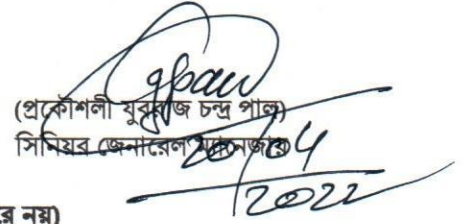 (প্রকৌশলী যুবরাজ চন্দ্র পাল)
সিনিয়র জেনারেল ম্যানেজার
20/04
2022
রে নয়)